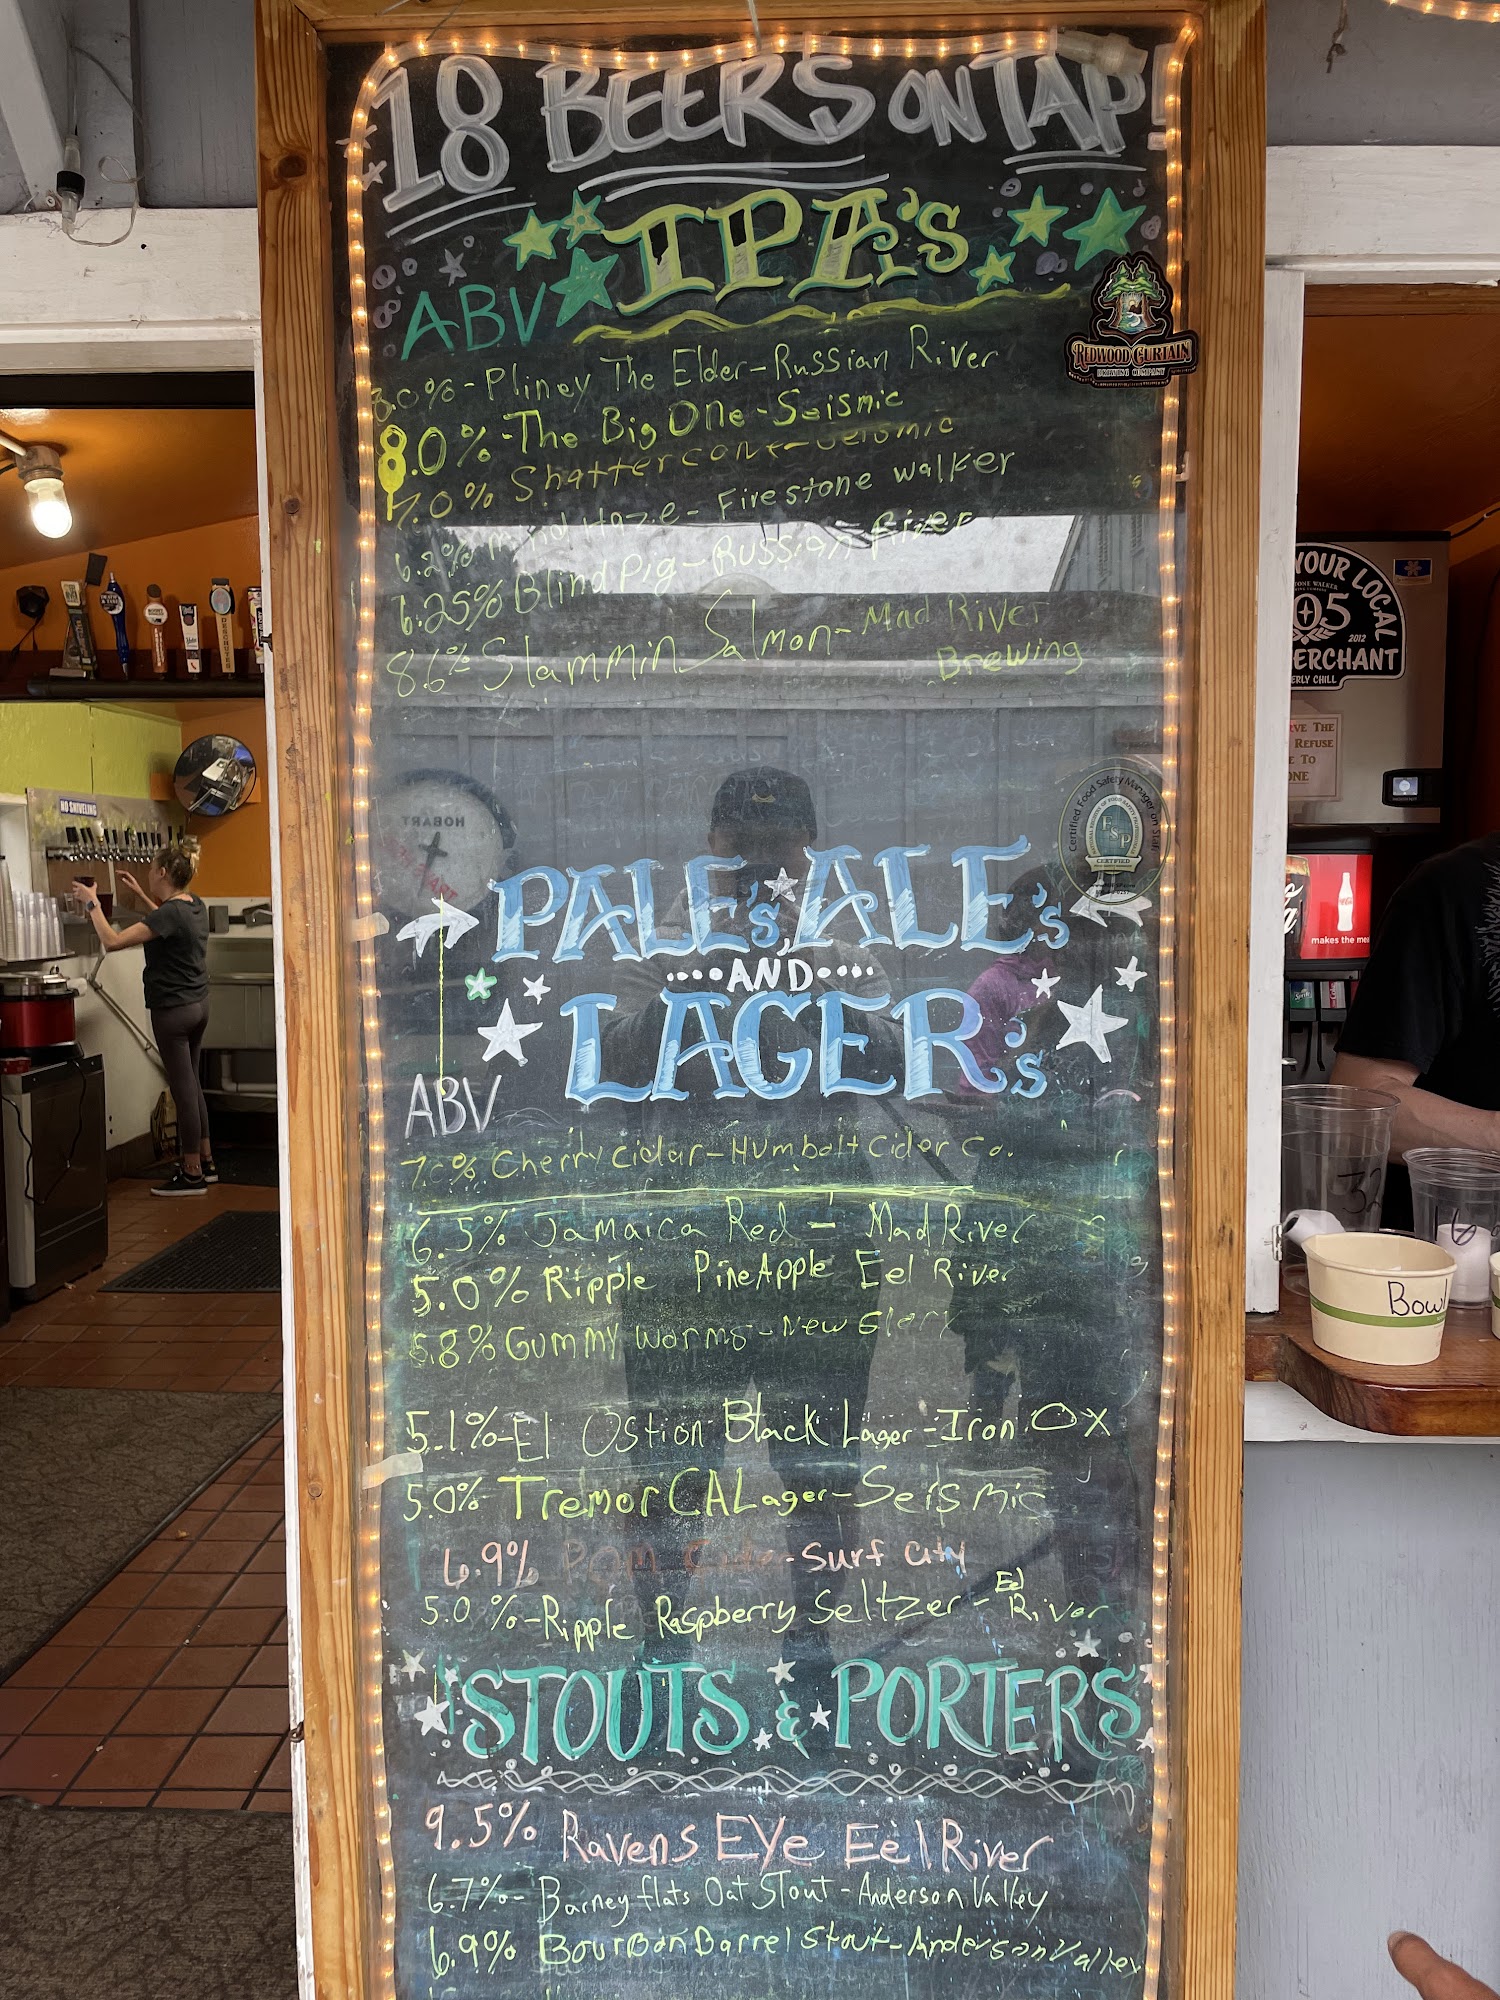 18 BEERS ON TAP!
IPA's
ABV
REDWOOD CURTAIN
BREWING COMPANY
8.0% - Pliney The Elder - Russian River
8.0% - The Big One - Seismic
7.0% Shatter cone - Seismic
6.2% Mind Haze - Firestone walker
6.25% Blind Pig - Russian River
8.6% Slammin Salmon - Mad River
Brewing
HOBART
Certified Food Safety Manager on Staff
FSP
CERTIFIED
PALE's, ALE's
AND
LAGER's
ABV
7.0% Cherry cidar - Humboldt Cider Co.
6.5% Jamaica Red - Mad River
5.0% Ripple PineApple Eel River
5.8% Gummy worms - New Glory
5.1% - El Ostion Black Lager - Iron Ox
5.0% Tremor CA Lager - Seismic
6.9% POM Cidar - Surf City
5.0% - Ripple Raspberry Seltzer - Eel River
STOUTS & PORTERS
9.5% Ravens EYe Eel River
6.7% - Barney flats Oat Stout - Anderson Valley
6.9% Bourbon Barrel Stout - Anderson Valley
NO SNIVELING
YOUR LOCAL
805
2012
MERCHANT
CHILL
THE
REFUSE
TO
makes the me
32
16
Bowl